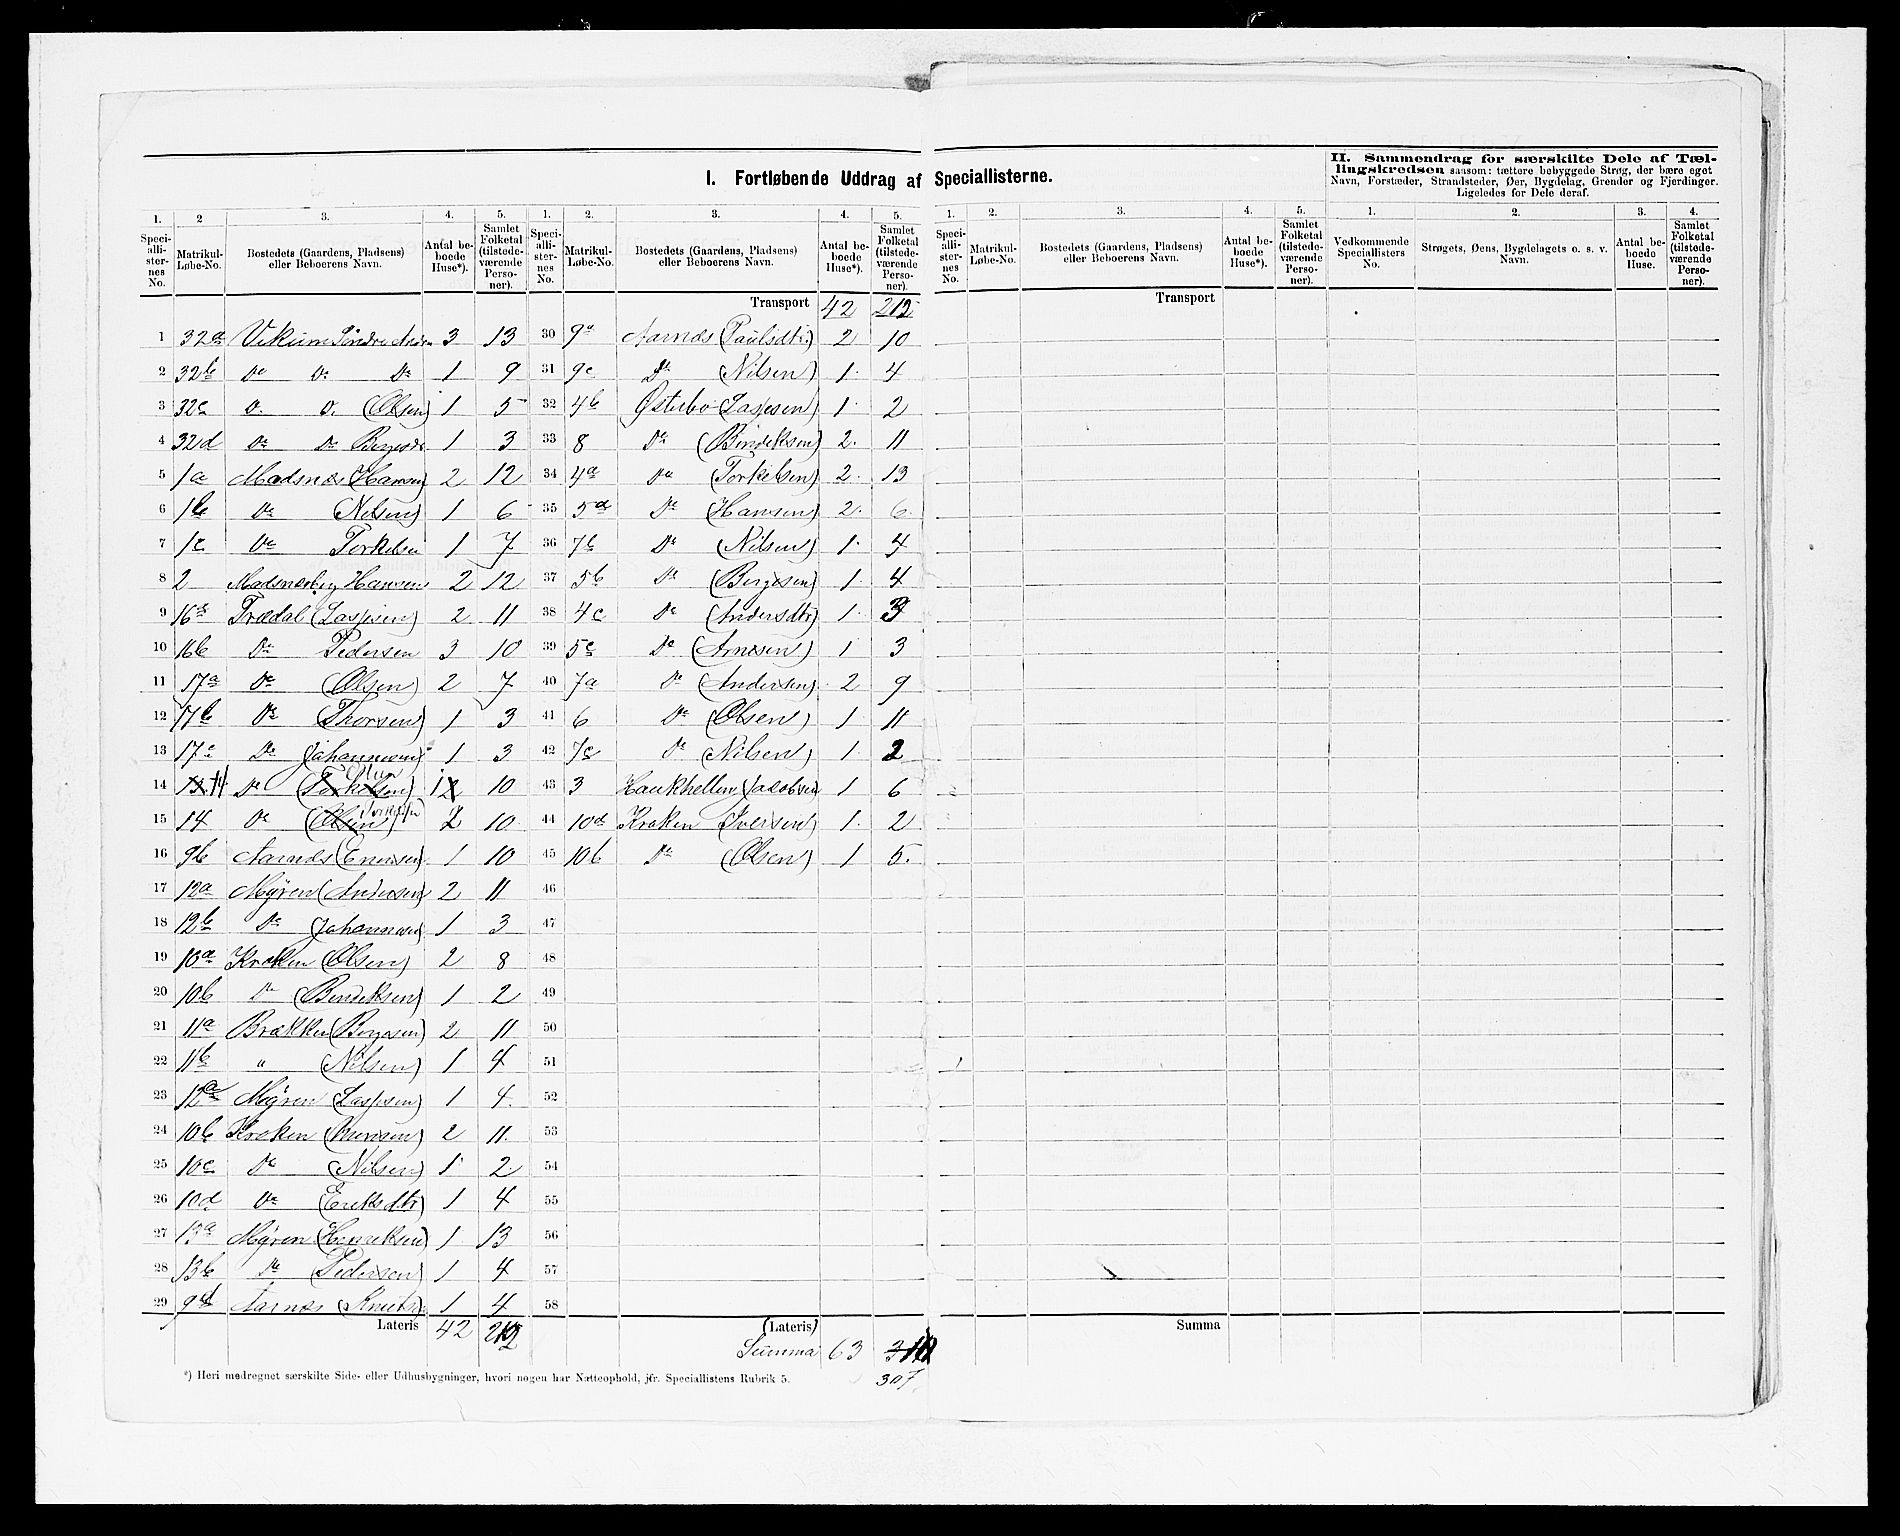 I. Fortløbende Uddrag af Speciallisterne.
II. Sammendrag for særskilte Dele af Tællingskredsen saasom: tættere bebyggede Strøg, der bære eget
Navn, Forstæder, Strandsteder, Øer, Bygdelag, Grender og Fjerdinger.
Ligeledes for Dele deraf.
1. 2 3. 4. 5. 1. 2. 3. 4. 5. 1. 2. 3. 4. 5. 1. 2. 3. 4.
Speciallisternes No. Matrikul-Løbe-No. Bostedets (Gaardens, Pladsens) eller Beboerens Navn. Antal beboede Huse*). Samlet Folketal (tilstedeværende Personer).
Speciallisternes No. Matrikul-Løbe-No. Bostedets (Gaardens, Pladsens) eller Beboerens Navn. Antal beboede Huse*). Samlet Folketal (tilstedeværende Personer).
Speciallisternes No. Matrikul-Løbe-No. Bostedets (Gaardens, Pladsens) eller Beboerens Navn. Antal beboede Huse*). Samlet Folketal (tilstedeværende Personer).
Vedkommende Speciallisters No. Strøgets, Øens, Bygdelagets o. s. v. Navn. Antal beboede Huse. Samlet Folketal (tilstedeværende Personer).
Transport 42 212 Transport
1 32a Vikum Søndre 3 13 30 9a Aarnæs (Paulsdtr.) 2 10
2 32b Do Do Do 1 9 31 9c Do (Nilsen) 1 4
3 32c D. D. (Olsen) 1 5 32 4b Østerbø (Laspesen) 1 2
4 32d Do Do 1 3 33 8 Do (Bendeksen) 2 11
5 1a Madsnæs (Hansen) 2 12 34 4a Do (Torkelsen) 2 13
6 1b Do (Nilsen) 1 6 35 5a Do (Hansen) 2 6
7 1c Do Torkelsen 1 7 36 7b Do (Nilsen) 1 4
8 2 Hansen 2 12 37 5b Do (Børgesen) 1 4
9 16a Trædal (Laspesen) 2 11 38 4c Do (Andersdtr) 1 3
10 16b Do Pedersen 3 10 39 5c Do (Arnesen) 1 3
11 17a Do (Olsen) 2 7 40 7a Do (Andersen) 2 9
12 17b Do (Thorsen) 1 3 41 6 Do (Olsen) 1 11
13 17c Do (Johannesen) 1 3 42 7c Do (Nilsen) 1 2
14 13. 14 Do (Torkelsen) Olsen 1 2 10 43 3 Haukhellen (Jacobsen) 1 6
15 14 Do (Olsen) Torkelsen 2 10 44 10d Kroken Iversen) 1 2
16 9b Aarnæs (Enersen) 1 10 45 10b Do (Olsen) 1 5
17 12a Mÿren (Andersen) 2 11 46
18 12b Do (Johannesen) 1 3 47
19 10a Kroken (Olsen) 2 8 48
20 10b Do (Bendeksen) 1 2 49
21 11a Brækken (Børgesen) 2 11 50
22 11b " (Nilsen) 1 4 51
23 12a Mÿren (Laspesen) 1 4 52
24 10b Kroken (Iversen) 2 11 53
25 10c Do (Nilsen) 1 2 54
26 10d Do (Eriksdtr) 1 4 55
27 13a Mÿren (Henriksen) 1 13 56
28 13b Do (Pedersen) 1 4 57
29 9d Aarnæs (Knuts.) 1 4 58
Lateris 42 212 (Lateris) Summa
Summa 63
307
*) Heri medregnet særskilte Side- eller Udhusbygninger, hvori nogen har Natteophold, jfr. Speciallistens Rubrik 5.